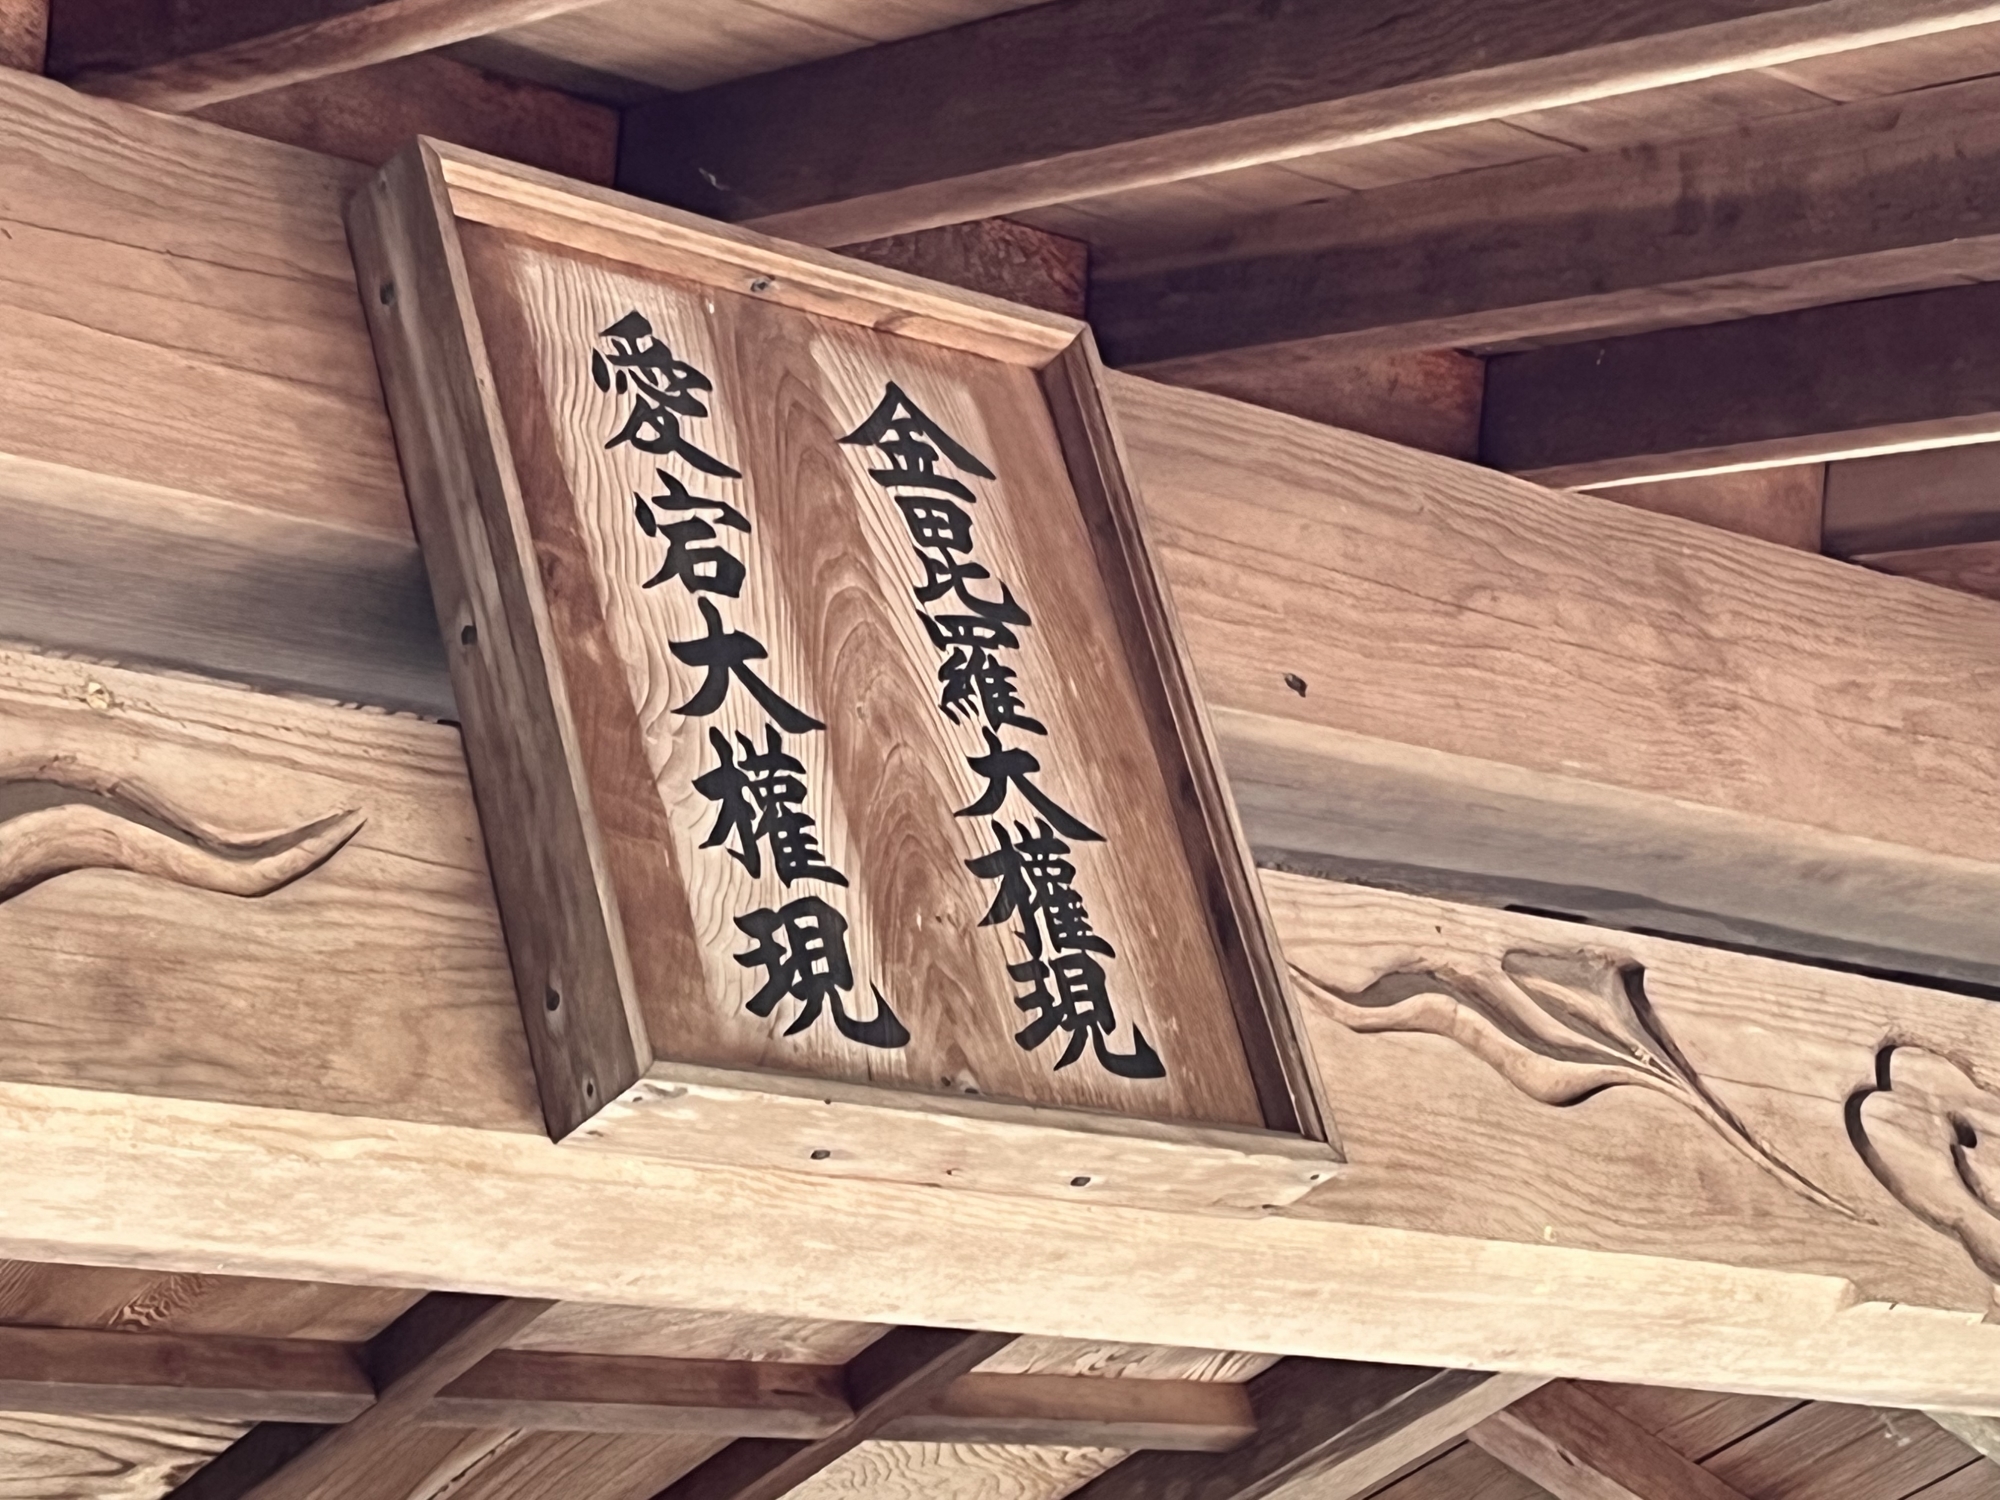 金毘羅大權現
愛宕大權現